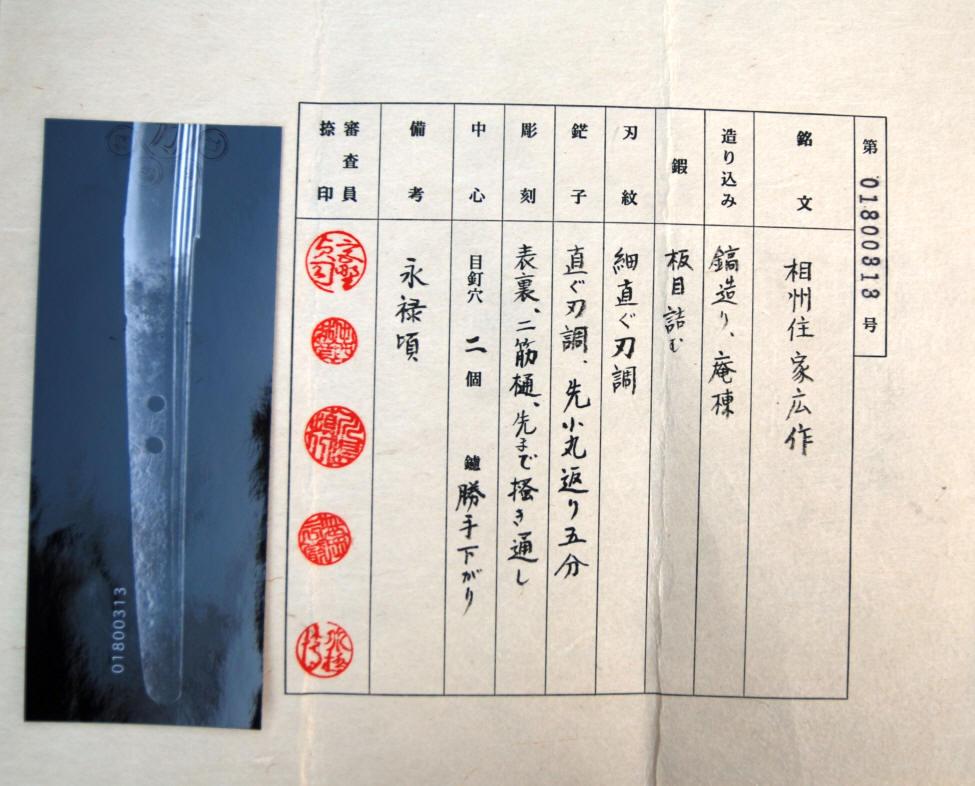 第 01800313 号
銘文
相州住家広作
造り込み
鎬造り、庵棟
鍜
板目詰む
刃紋
細直ぐ刃調
鋩子
直ぐ刃調、先小丸返り五分
彫刻
表裏、二筋樋、先まで掻き通し
中心
目釘穴 二 個 鑢 勝手下がり
備考
永禄頃
審査員
捺印
01800313